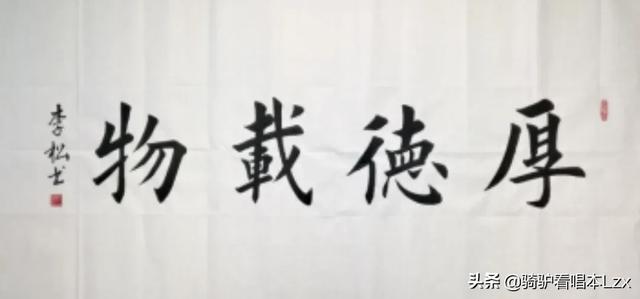 厚德載物
李松书
头条 @骑驴看唱本Lzx